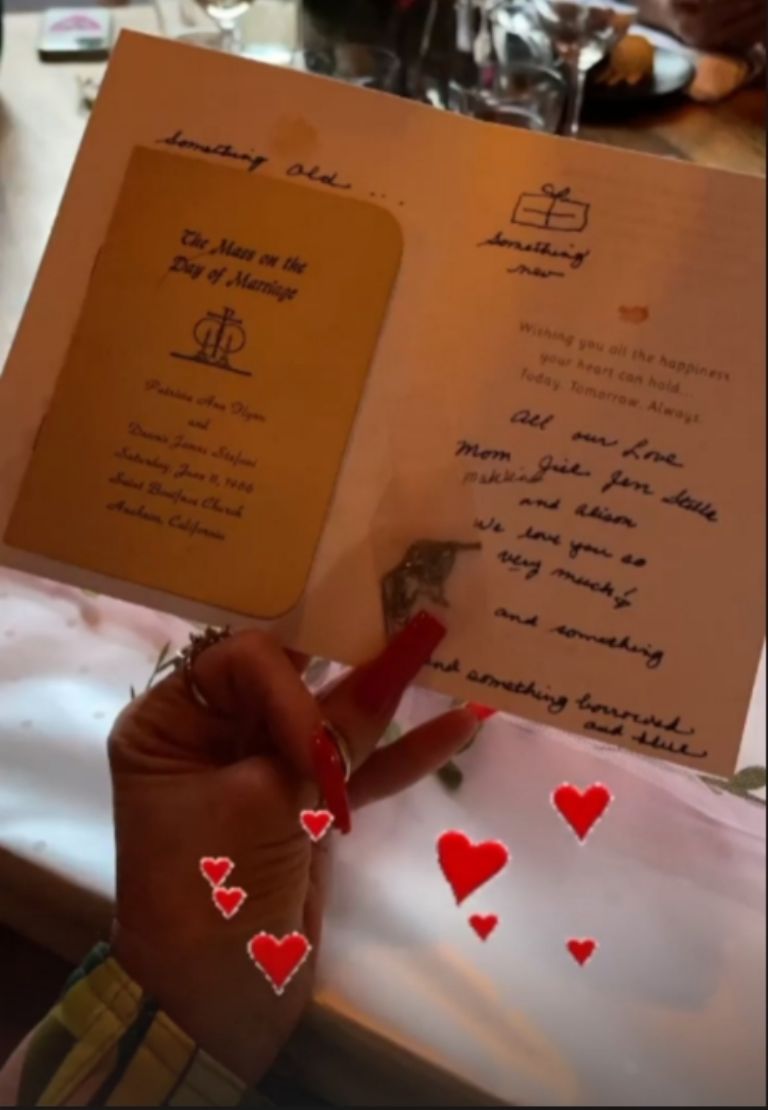 Something Old ...
The Mass on the
Day of Marriage
Patricia Ann Flynn
and
Dennis James Stefani
Saturday, June
Saint Boniface Church
Anaheim, California
Something
new
Wishing you all the happiness
your heart can hold...
Today. Tomorrow. Always.
All our Love
Mom Jill Jen
Madeline
and Alison
We love you so
very much!
and something
and something borrowed
and blue